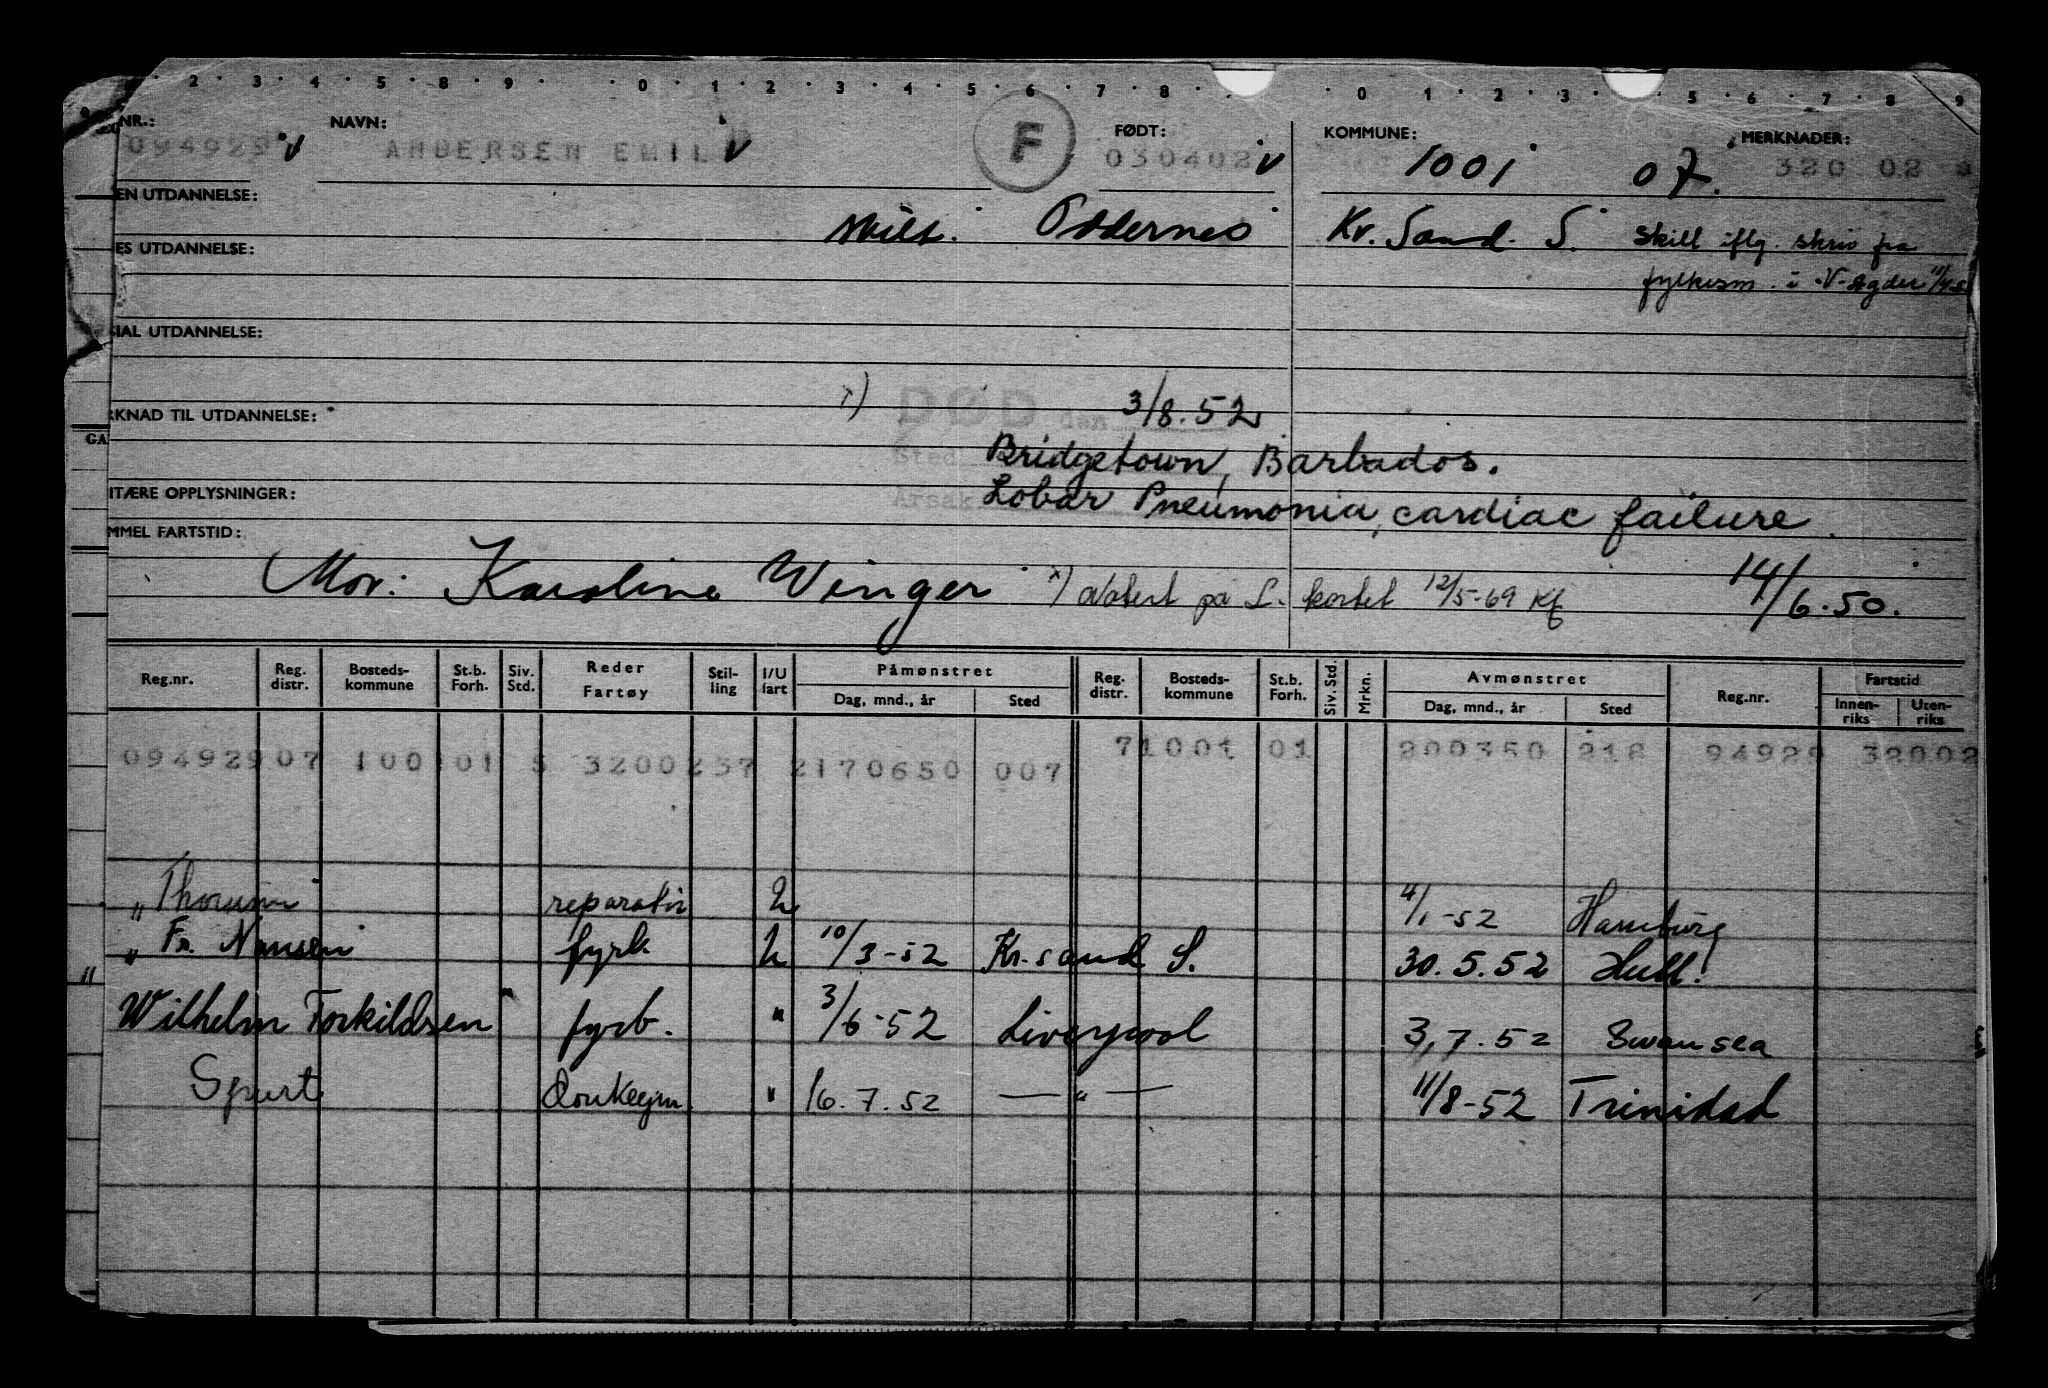 2 · 3 · 4 · 5 · 8 · 9 · 0 · 1 · 2 · 3 · 4 · 5 · 6 · 7 · 8 · 0 · 1 · 2 · 3 5 · 6 · 7 · 8 · 9
NR.: NAVN: F FØDT: KOMMUNE: MERKNADER:
094929 V ANDERSEN EMIL V 030402 V 1001 07. 320 02
EN UTDANNELSE:
skilt. Oddernes Kr. Sand. S. Skilt iflg. skriv fra
ES UTDANNELSE:
fylkesm. i V-Agder
IAL UTDANNELSE:
x) DØD den 3/8.52
RKNAD TIL UTDANNELSE:
GA
Sted Bridgetown, Barbados.
ITÆRE OPPLYSNINGER:
Årsak Lobar Pneumonia, cardiac failure
MMEL FARTSTID:
Mor: Karoline Winger x) notert på S. kortet 12/5-69 Kf 14/6.50.
Reg.nr. Reg. distr. Bosteds-kommune St.b. Forh. Siv. Std. Reder Fartøy Stil-ling I/U fart Påmønstret Dag, mnd., år Sted Reg. distr. Bosteds-kommune St.b. Forh. Siv. Std. Mrkn. Avmønstret Dag, mnd., år Sted Reg.nr. Fartstid Innen-riks Uten-riks
09492907 100101 S 3200257 2170650 007 71001 01 200350 218 94929 32002
" Thorunn reparatør U 4/1-52 Hamburg
" Fr. Nansen fyrb. U 10/3-52 Kr.sand S. 30.5.52 Hull.
" Wilhelm Torkildsen " fyrb. " 3/6-52 Liverpool 3,7.52 Swansea
Spurt donkeym. " 16.7.52 — " — 11/8-52 Trinidad